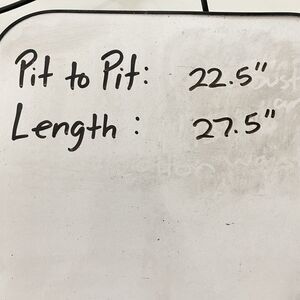 Pit to Pit: 22.5"
Length: 27.5"